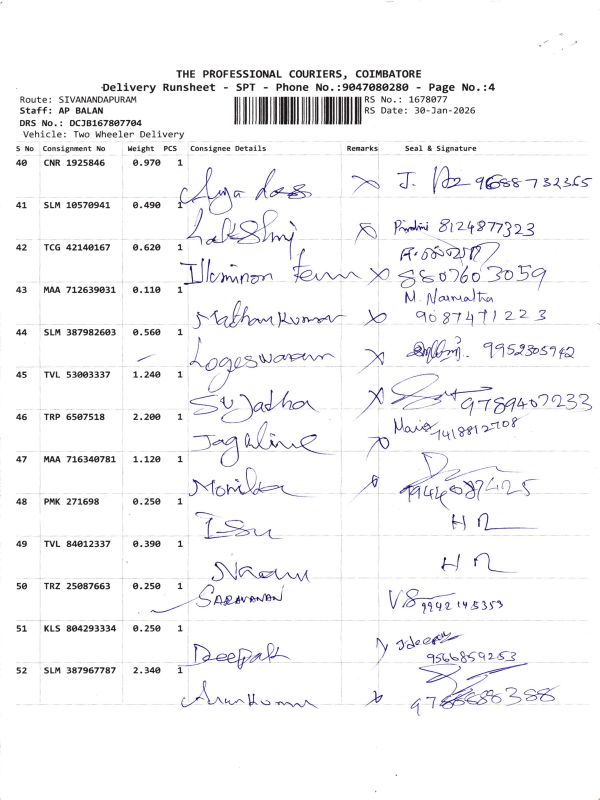 THE PROFESSIONAL COURIERS, COIMBATORE
Delivery Runsheet - SPT - Phone No.:9047080280 - Page No.:4
Route: SIVANANDAPURAM RS No.: 1678077
Staff: AP BALAN RS Date: 30-Jan-2026
DRS No.: DCJB167807704
Vehicle: Two Wheeler Delivery
S No Consignment No Weight PCS Consignee Details Remarks Seal & Signature
40 CNR 1925846 0.970 1
J. 9688732365
41 SLM 10570941 0.490 1
Lakshmi 8124877323
42 TCG 42140167 0.620 1
8807603059
43 MAA 712639031 0.110 1
M. Narmatha
Mathankumar 9087471223
44 SLM 387982603 0.560 1
Logeswaran 9952305942
45 TVL 53003337 1.240 1
Sujatha 9789407233
46 TRP 6507518 2.200 1
Jagkline 7418812708
47 MAA 716340781 1.120 1
Monika
48 PMK 271698 0.250 1
Isu H N
49 TVL 84012337 0.390 1
H N
50 TRZ 25087663 0.250 1
SARAVANAN VS 9942145353
51 KLS 804293334 0.250 1
Deepak 9566859253
52 SLM 387967787 2.340 1
Arunkumar